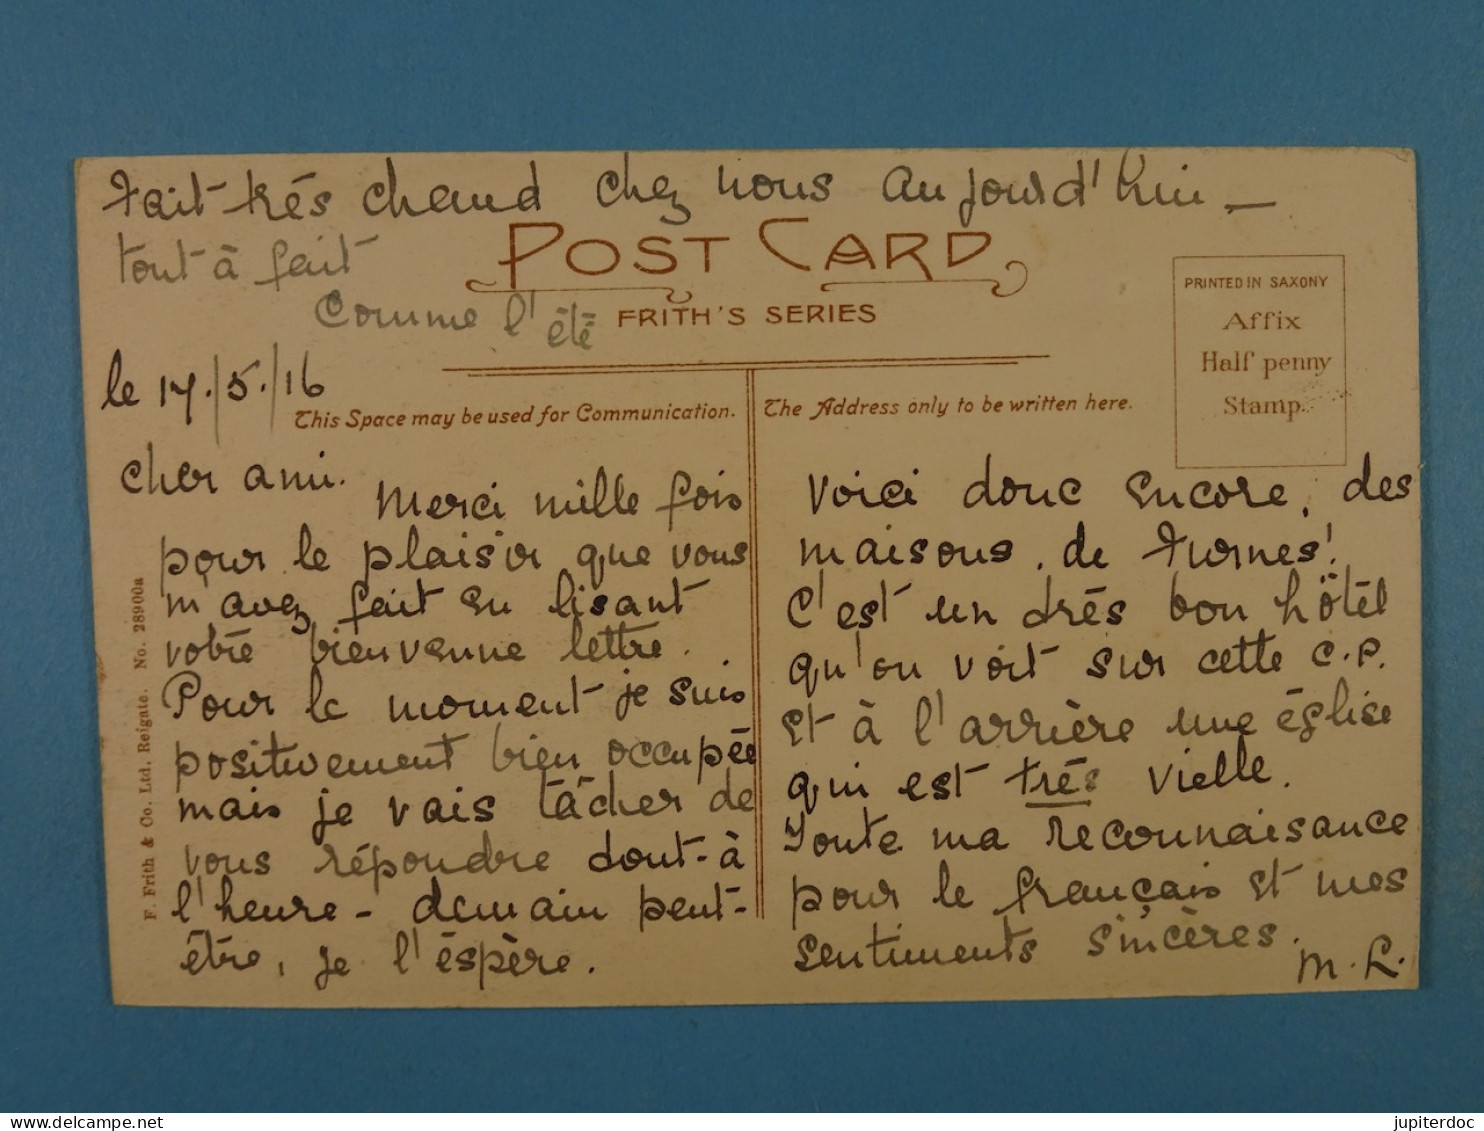 Fait très chaud chez nous aujourd'hui —
tout à fait
comme l'été
POST CARD
FRITH'S SERIES
PRINTED IN SAXONY
Affix
Half penny
Stamp.
le 17./5./16
This Space may be used for Communication.
The Address only to be written here.
cher ami.
Merci mille fois
pour le plaisir que vous
m'avez fait en lisant
votre bienvenue lettre.
Pour le moment je suis
positivement bien occupée
mais je vais tâcher de
vous répondre tout-à
l'heure - demain peut-
être, je l'éspère.
Voici donc encore, des
maisons, de Furnes!
C'est un très bon hôtel
qu'on voit sur cette c.p.
et à l'arrière une église
qui est très vielle.
Toute ma reconnaisance
pour le français et mes
sentiments sincères.
M. L.
F. Frith & Co. Ltd. Reigate. No. 28900a
jupiterdoc